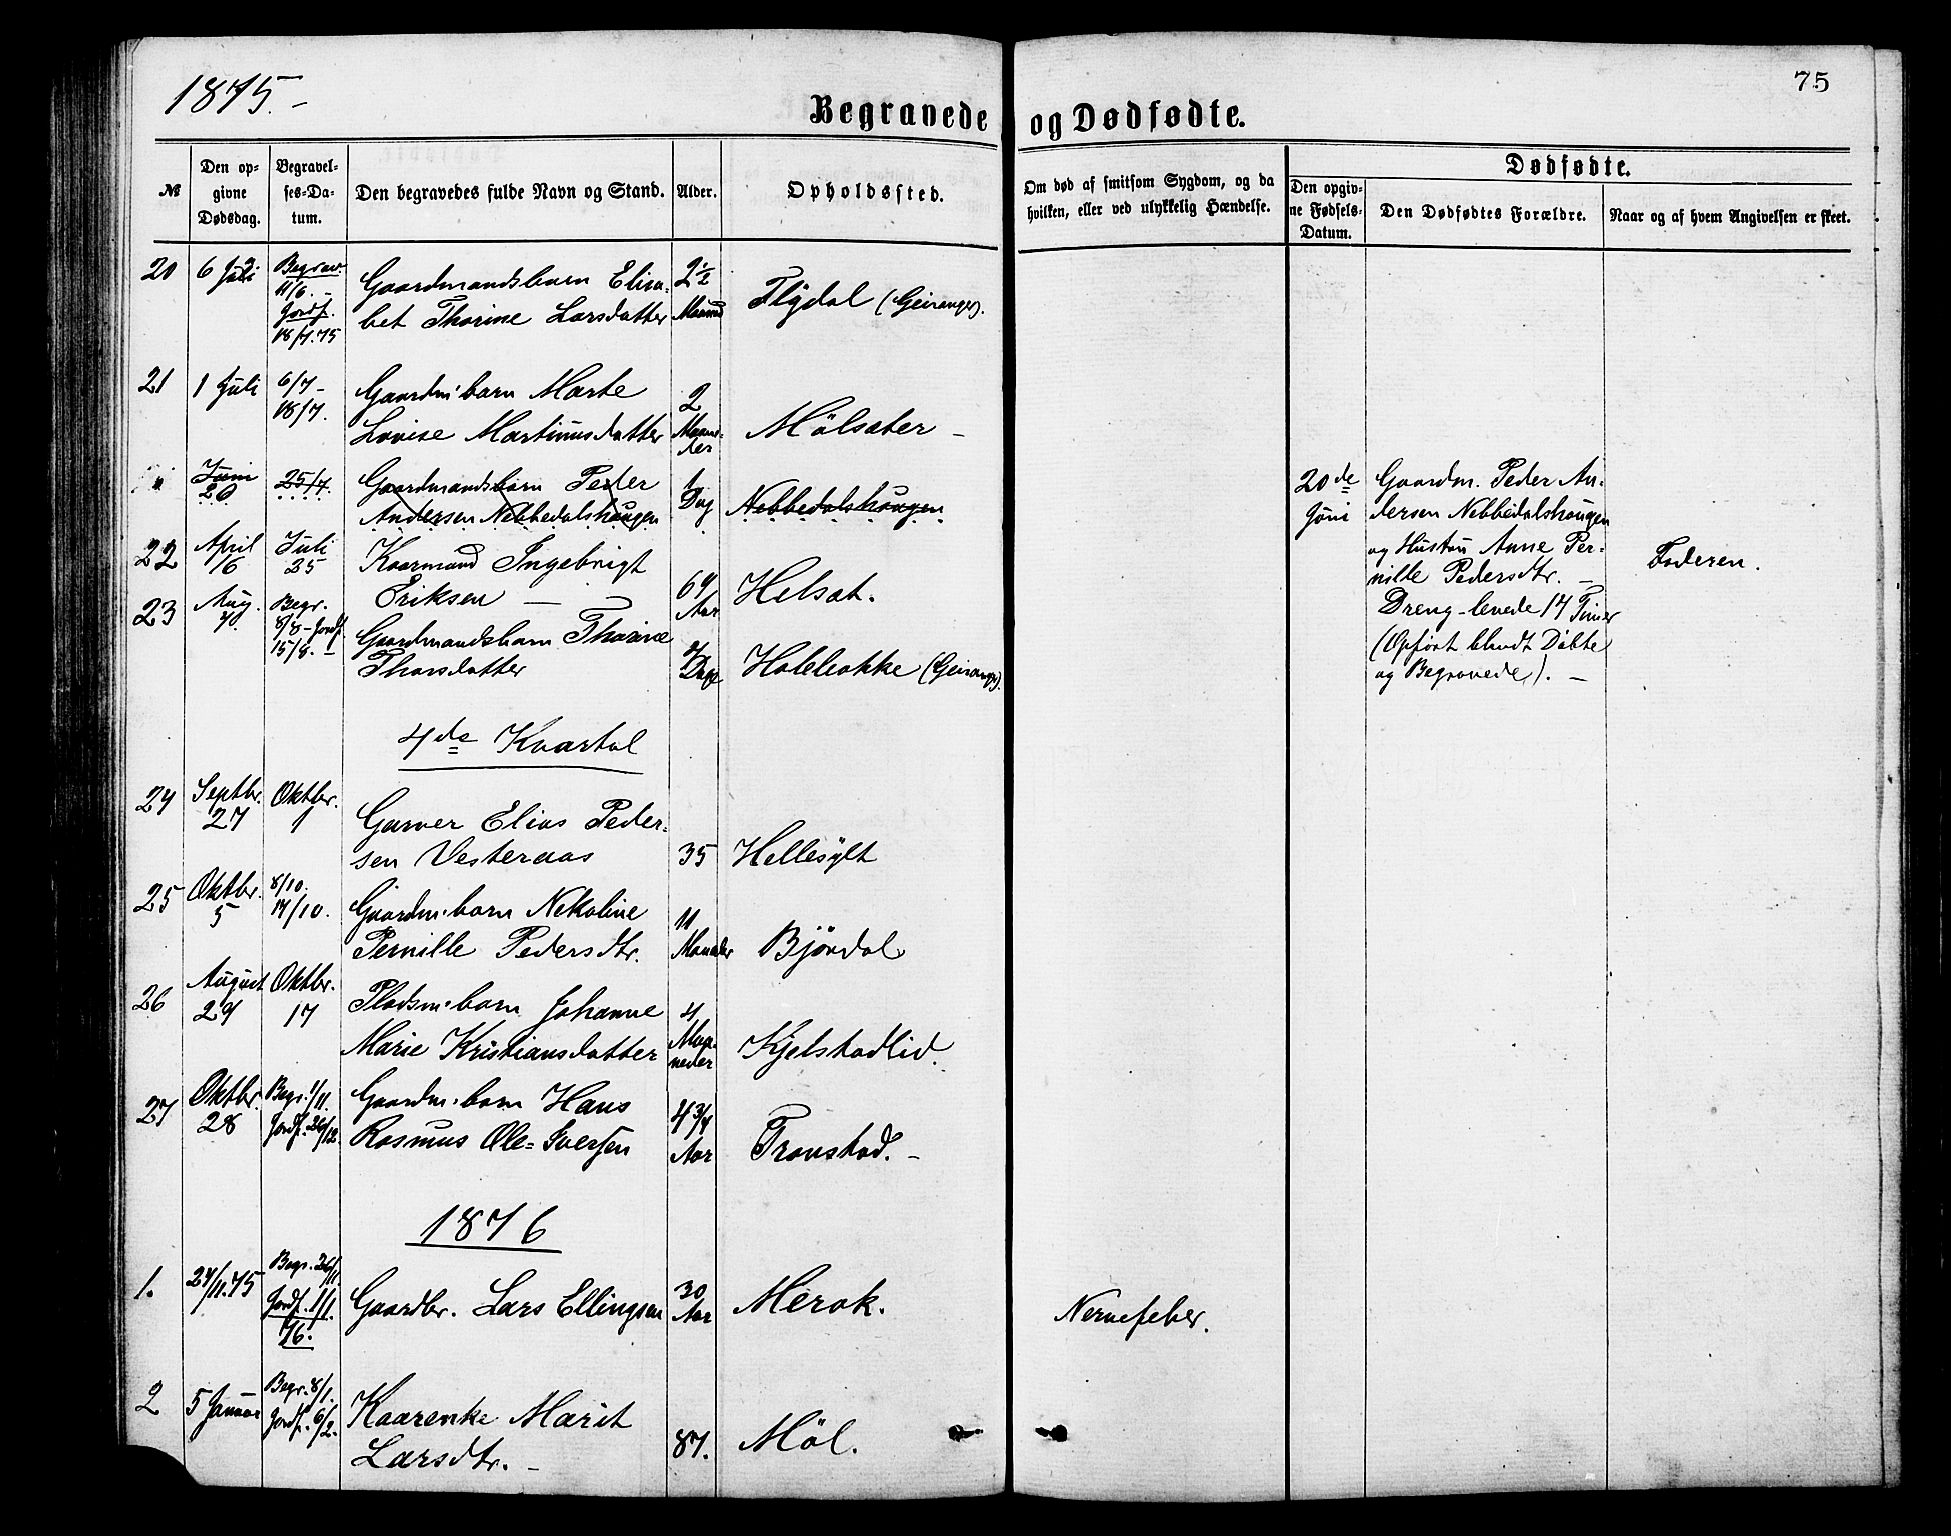 1875.-
75
Begravede og Dødfødte.
№
Den op-
givne
Dødsdag.
Begravel-
ses-Da-
tum.
Den begravedes fulde Navn og Stand.
Alder.
Opholdssted.
Om død af smitsom Sygdom, og da
hvilken, eller ved ulykkelig Hændelse.
Dødfødte.
Den opgiv-
ne Fødsels-
Datum.
Den Dødfødtes Forældre.
Naar og af hvem Angivelsen er skeet.
20
6 Juli
Begrav.
11/6. -
Jordf.
18/7.75
Gaardmandsbarn Elisa-
bet Thorine Larsdatter
2 1/2
Maaned
Flydal (Geiranger).
21
1 Juli
6/7 -
18/7.
Gaardm: barn Marte
Lovise Martinusdatter
2
Maane-
der
Mölsæter -
Juni
20
25/7.
Gaardmandsbarn Peder
Andersen Nebbedalshaugen
1
Dag
Nebbedalshaugen
20de
Juni
Gaardm. Peder An-
dersen Nebbedalshougen
og Hustru Anne Per-
nille Pedersdtr. -
Dreng - levede 14 Timer
(Opført blandt Döbte
og Begravede). -
Faderen.
22
April
16
Juli
25
Kaarmand Ingebrigt
Eriksen -
64
Aar
Helsæt.
23
Aug.
Begr.
8/8 - Jordf.
15/8. -
Gaardmandsbarn Thorine
Thorsdatter
Dage
Holebakke (Geiranger).
4de Kvartal
24
Septbr.
27
Oktbr.
1
Garver Elias Peder-
sen Vesteraas
35
Hellesylt
25
Oktbr.
5
8/10.
17/10.
Gaardm: barn Nekoline
Pernille Pedersdtr.
11
Maaneder
Bjørdal
26
August
24
Oktbr.
17
Pladsm: barn Johanne
Marie Kristiansdatter
4
Maa-
neder
Kjelstadlid.
27
Oktbr.
28
Begr. 1/11.
Jordf. 26/12.
Gaardm: barn Hans
Rasmus Ole-Iversen
4 3/4
Aar
Tronstad. -
1876
1.
24/11.75
Begr. 26/11.
Jordf. 1/1.
76.
Gaardbr. Lars Ellingsen
30
Aar
Merok.
Nervefeber.
2
5 Januar
Begr. 8/1.
Jordf. 6/2.
Kaarenke Marit
Larsdtr. -
87.
Möl.